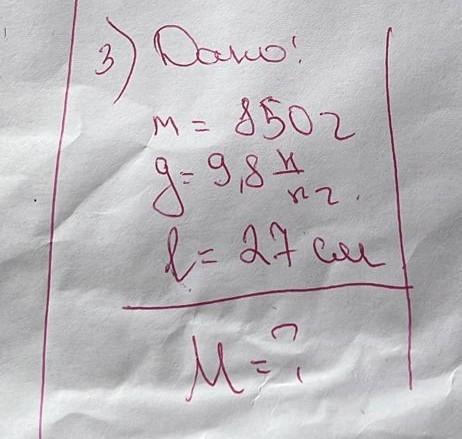 3) Дано:
m = 850 г
g = 9,8 Н/кг.
l = 27 см
M = ?